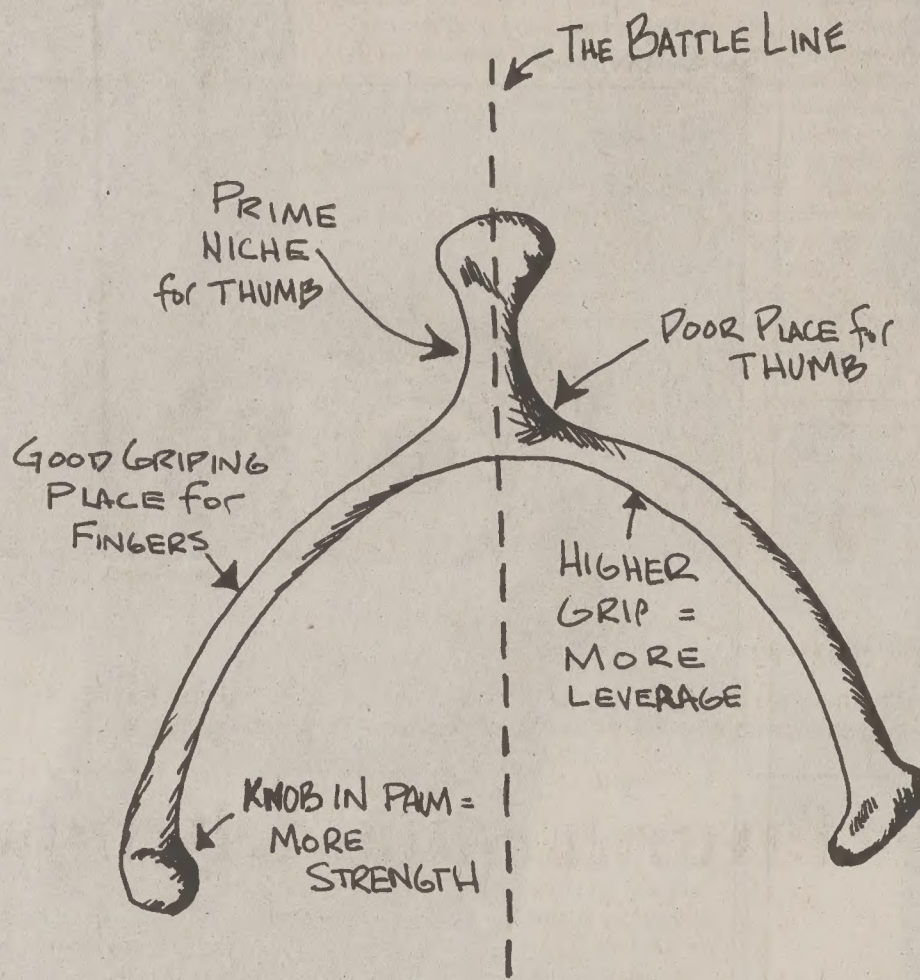 THE BATTLE LINE
PRIME
NICHE
for THUMB
POOR PLACE for
THUMB
GOOD GRIPING
PLACE for
FINGERS
HIGHER
GRIP =
MORE
LEVERAGE
KNOB IN PALM =
MORE
STRENGTH